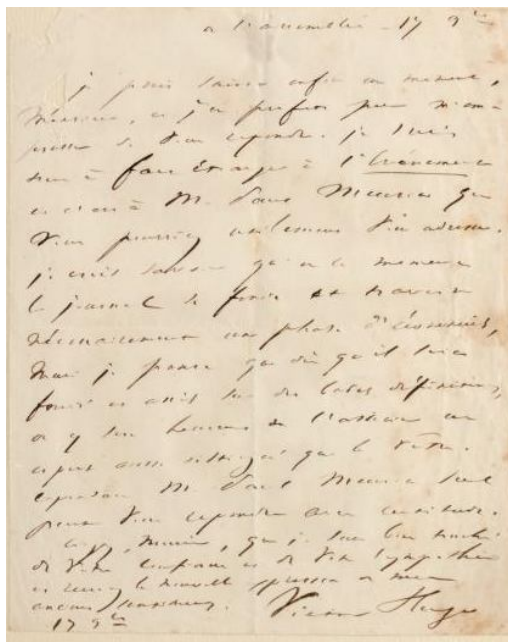 à l'assemblée - 17 9bre
je puis saisir enfin un moment,
Monsieur, et j'en profite pour m'em-
presser de vous répondre. je suis
tout à fait étranger à l'Événement
et c'est à M. Paul Meurice que
vous pourriez utilement vous adresser.
je crois savoir qu'en ce moment
le journal se fonde et traverse
nécessairement une phase d'économies,
mais je pense que dès qu'il sera
fondé et assis sur des bases définitives,
on y sera heureux de s'attacher un
esprit aussi distingué que le vôtre.
cependant M. Paul Meurice seul
pourra vous répondre avec certitude.
croyez, Monsieur, que je suis bien touché
de votre confiance et de votre sympathie
et recevez la nouvelle expression de mes
sentiments.
Victor Hugo
17 9bre